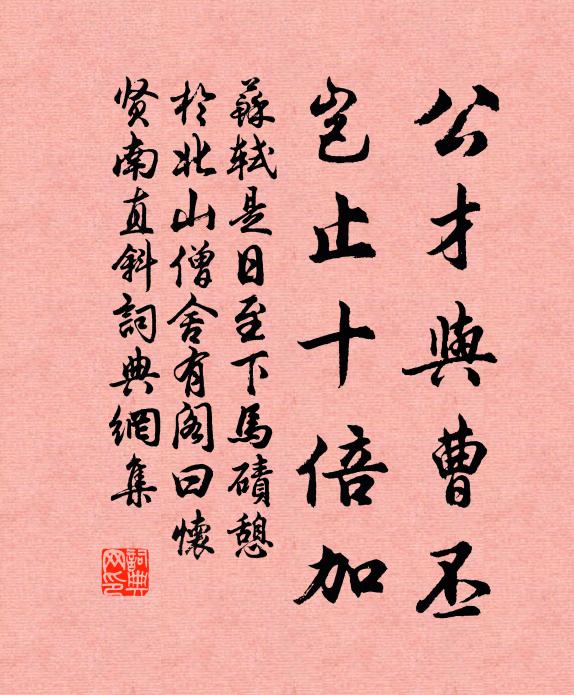 公才與曹丕
豈止十倍加
蘇軾是日至下馬磧憩
於北山僧舍有閣曰懷
贤南直斜詞典網集
詞典网印